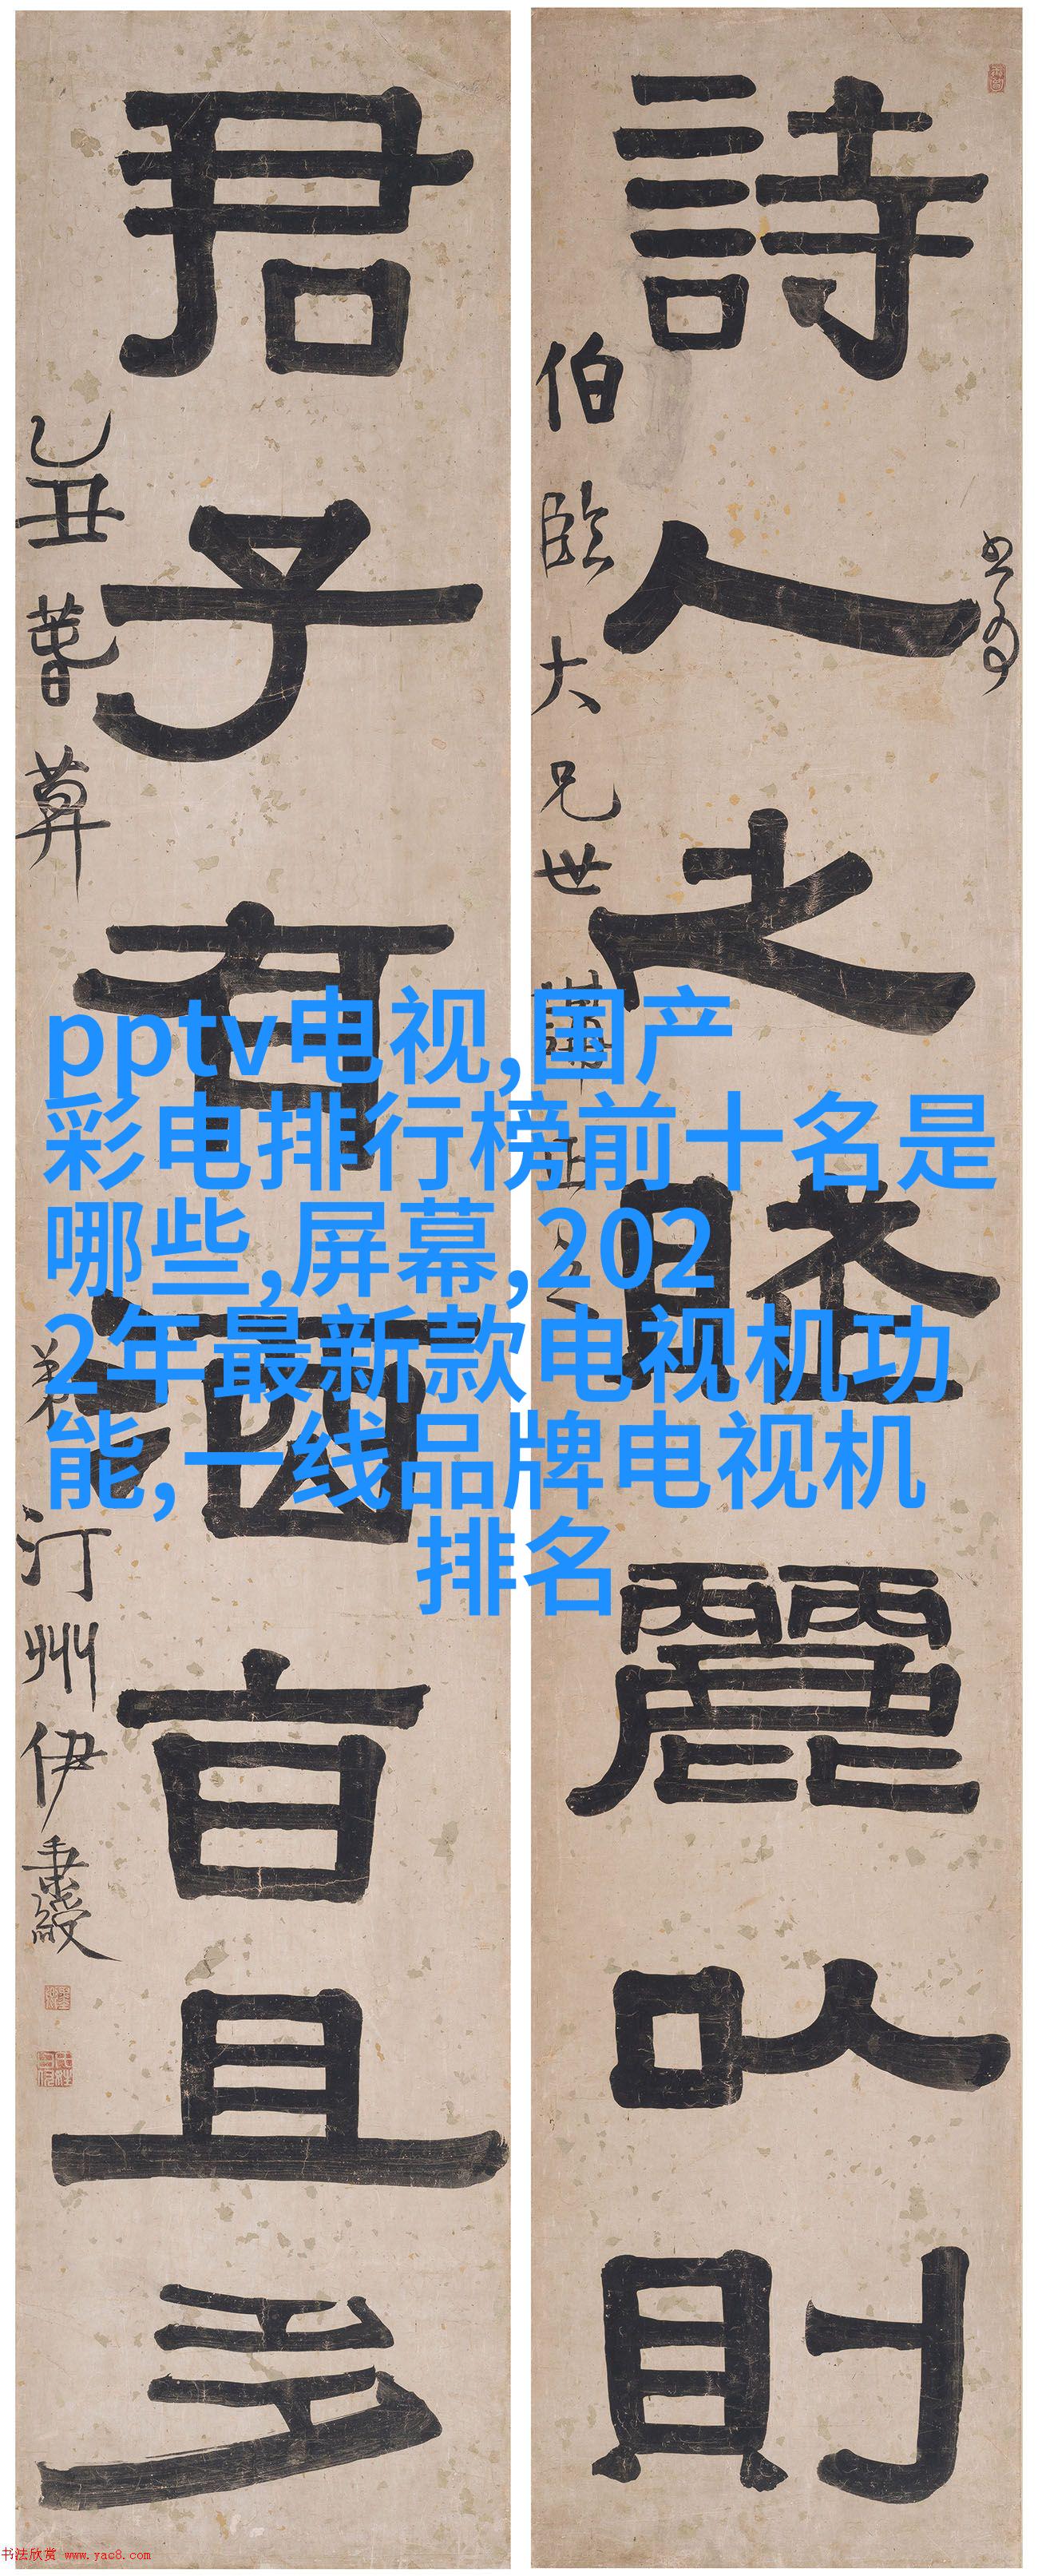 pptv电视,国产
彩电排行榜前十名是
哪些,屏幕,202
2年最新款电视机功
能,一线品牌电视机
排名
詩人之賦麗以則
伯臨大兄世講正之
君子有酒旨且多
乙丑
弟汀州伊秉綬
书法欣赏 www.yac8.com